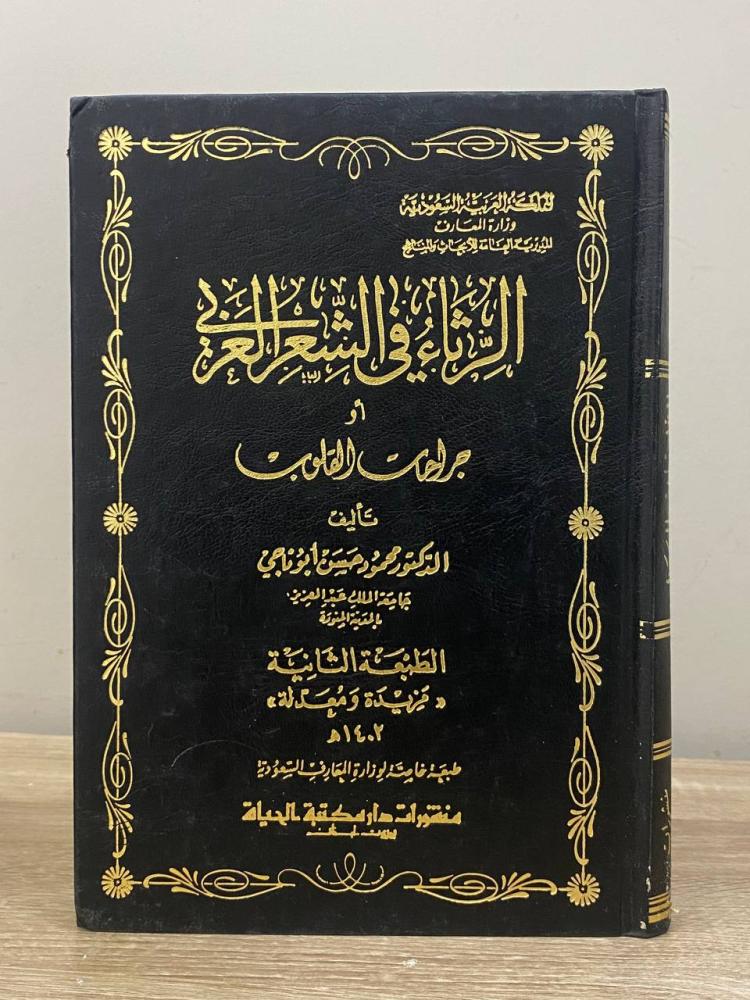 المملكة العربية السعودية
وزارة المعارف
المديرية العامة للأبحاث والمناهج
الرِّثاءُ في الشِّعر العَرَبي
أو
جراحات القلوب
تأليف
الدكتور محمود حَسَن أبو ناجي
جامعة الملك عبد العزيز
بالمدينة المنورة
الطبعة الثانية
«مزيدة ومُعدلة»
١٤٠٢هـ
طبعة خاصة لوزارة المعارف السعودية
منشورات دار مكتبة الحياة
بيروت لبنان